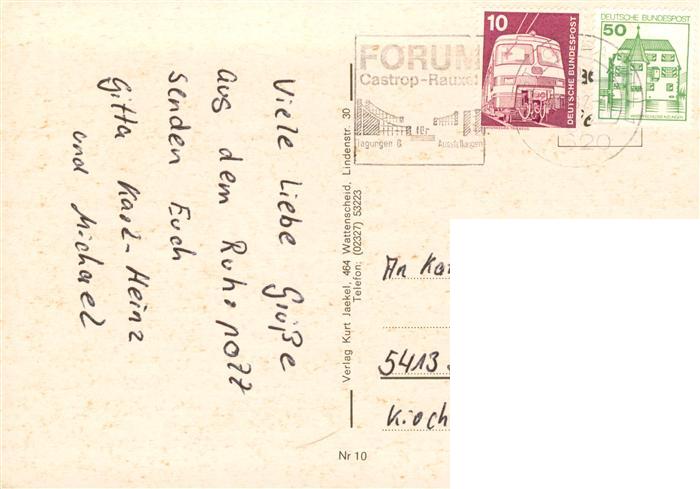 Viele Liebe Grüße
aus dem Ruhrpott
senden Euch
Gitta Karl-Heinz
und Michael
Verlag Kurt Jaekel, 464 Wattenscheid, Lindenstr. 30
Telefon: (02327) 53223
Nr 10
FORUM
Castrop-Rauxel
für
Tagungen & Ausstellungen
10
DEUTSCHE BUNDESPOST
DEUTSCHE BUNDESPOST
50
620
An
5413